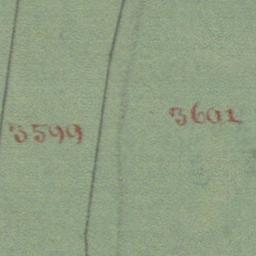 3599
3601